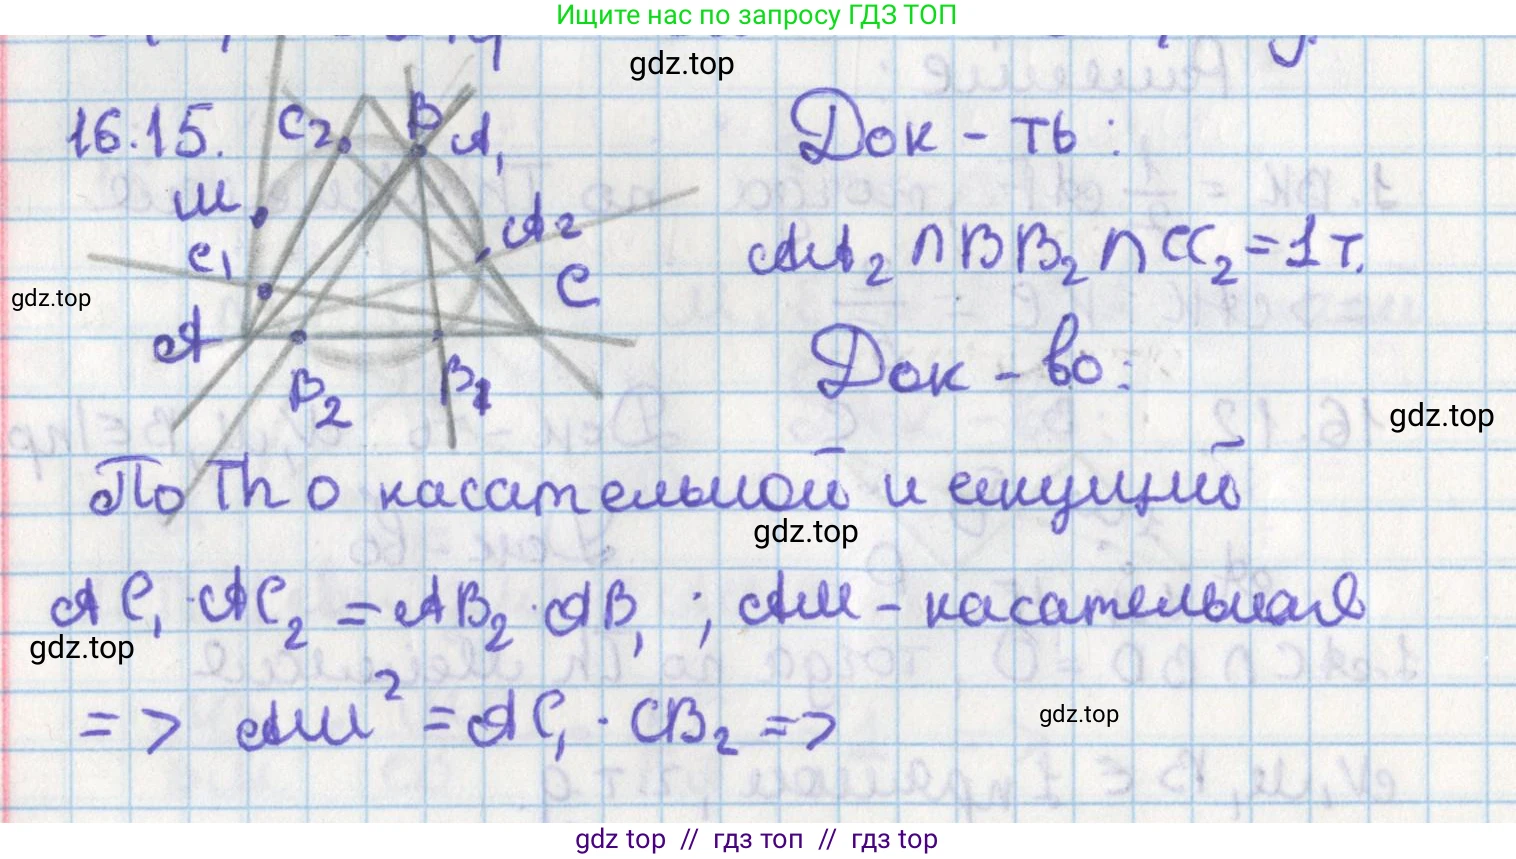 Ищите нас по запросу ГДЗ ТОП
gdz.top
16.15.
C₂ B A₁
Док - ть:
M
A₂
AA₂ ∩ BB₂ ∩ CC₂ = 1 т.
C₁
C
gdz.top
A
Док - во:
B₂ B₁
gdz.top
По Th о касательной и секущей
gdz.top
AC₁ · AC₂ = AB₂ · AB₁ ; AM - касательная
gdz.top
=> AM² = AC₁ · CB₂ =>
gdz.top
gdz top // гдз топ // гдз top